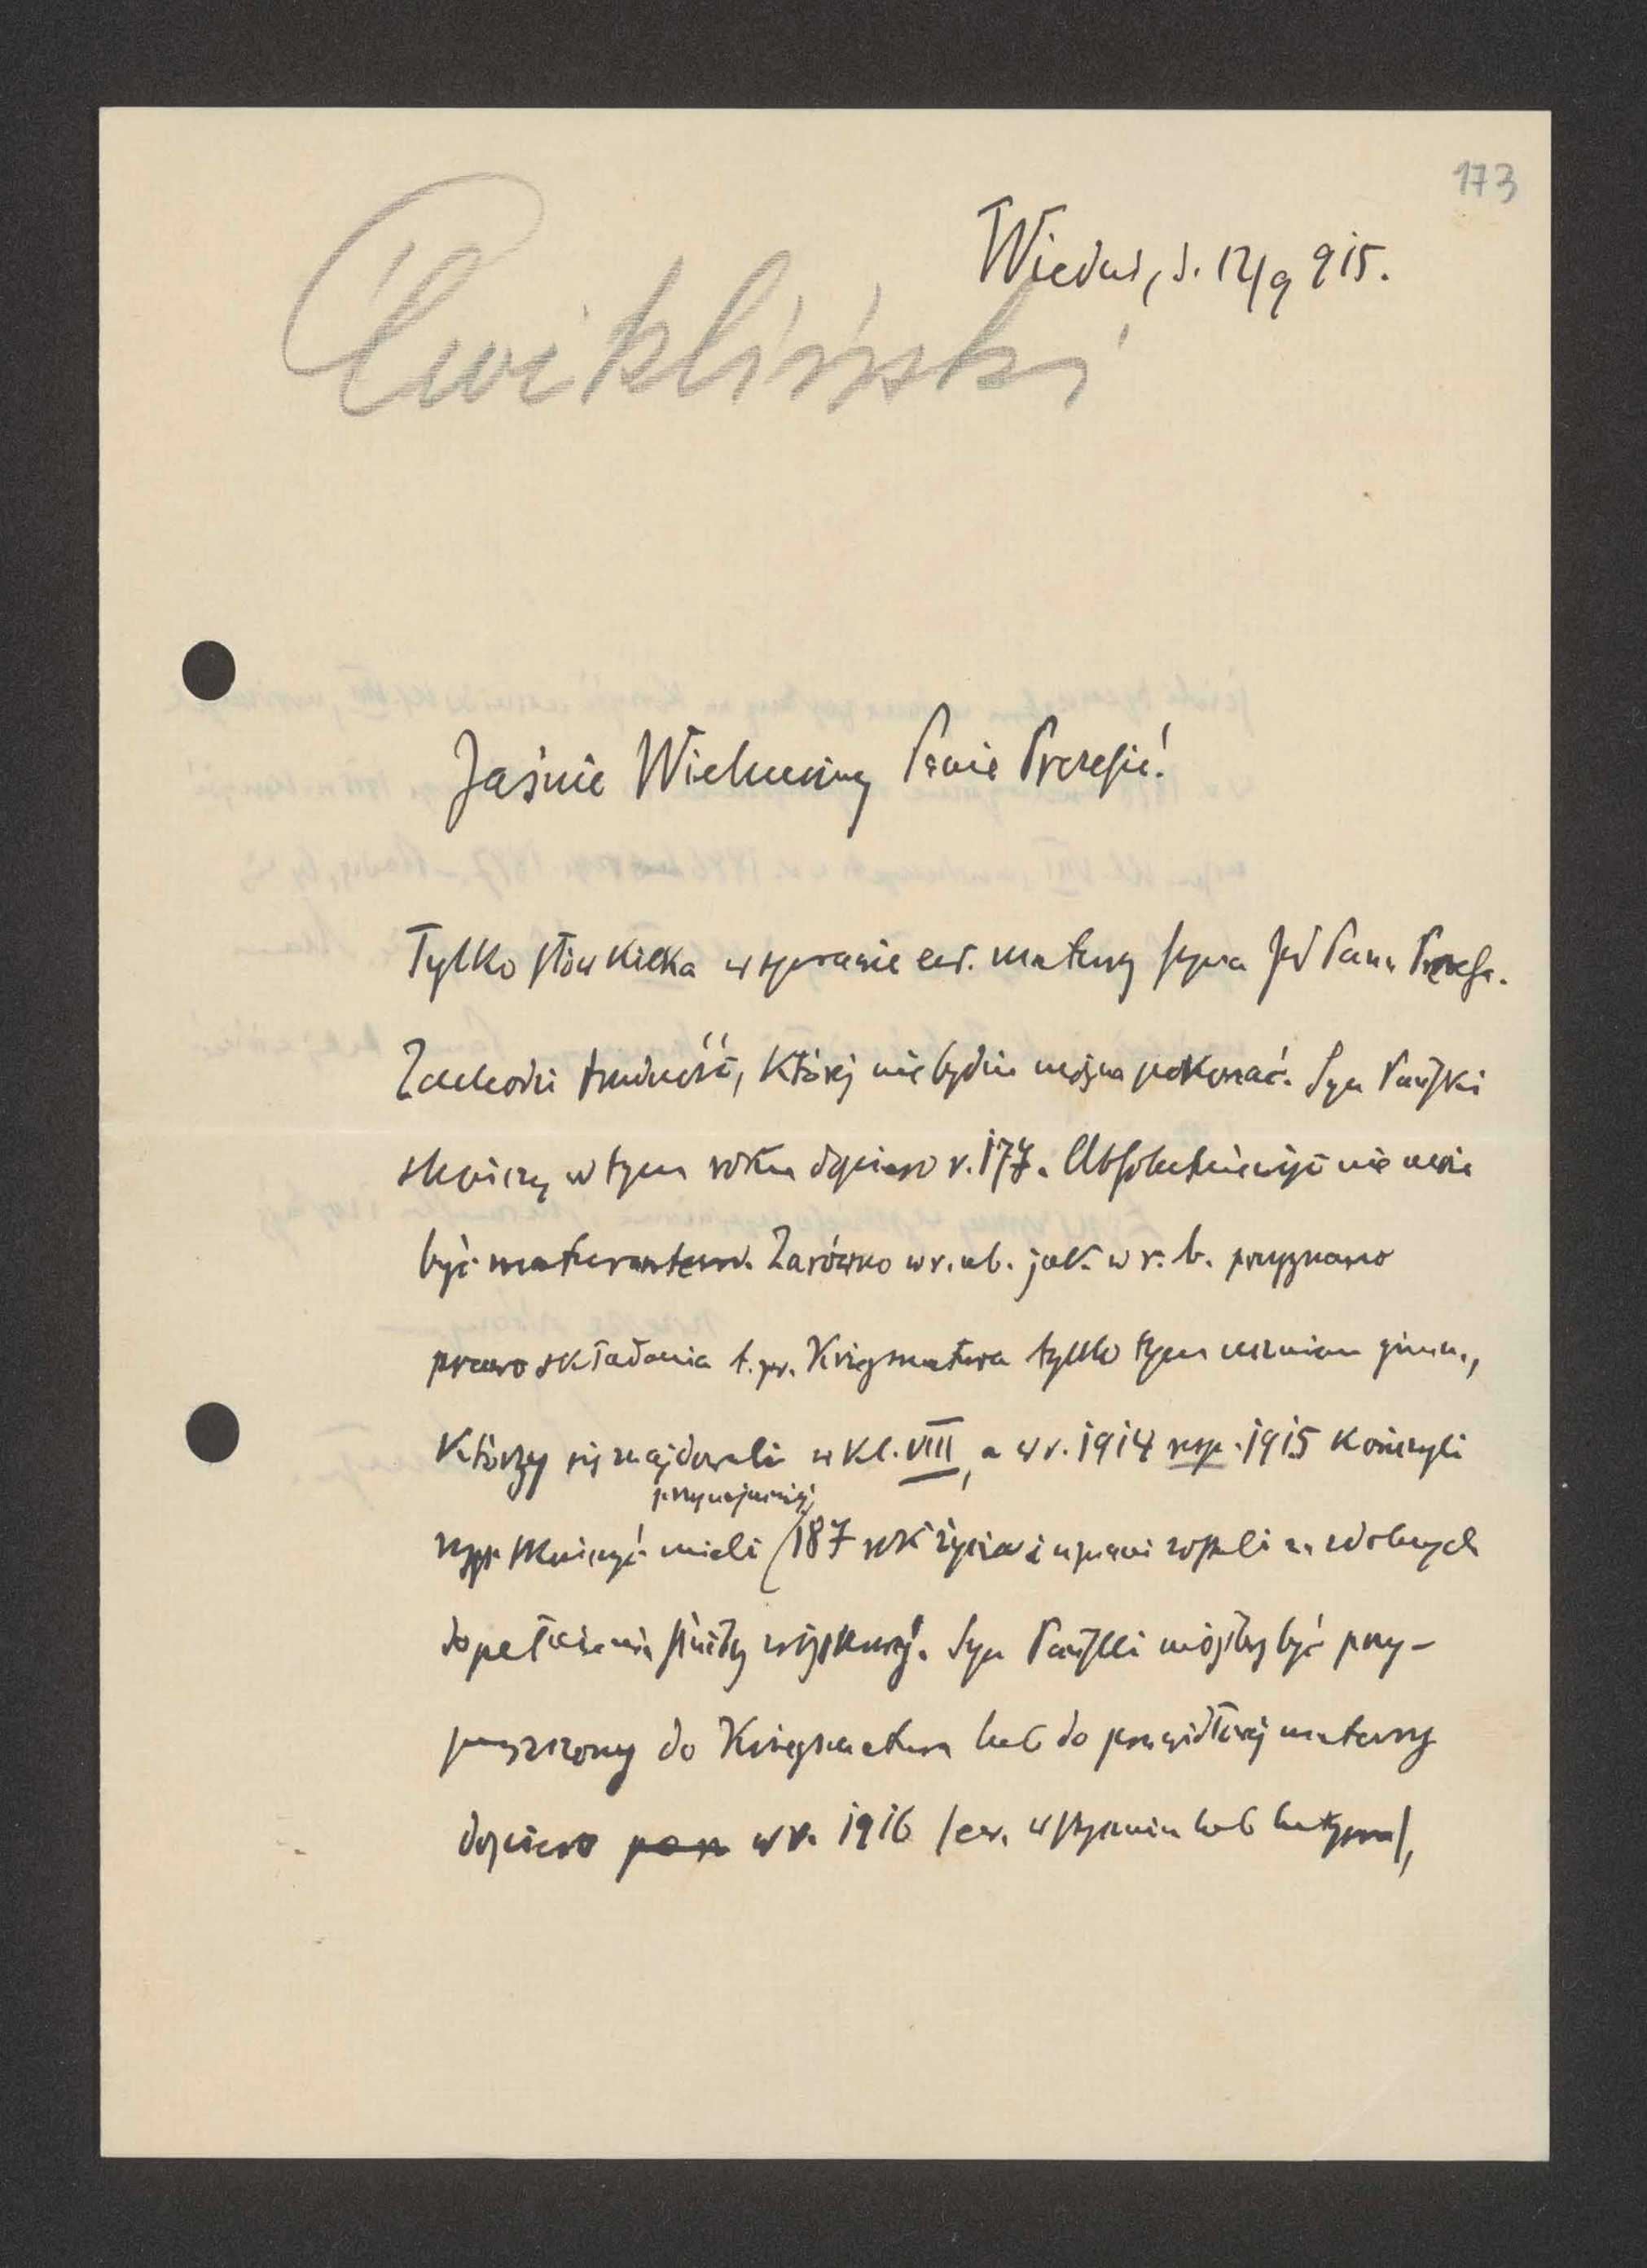 173
Wiedeń, d. 12/9 915.
Ćwikliński
Jaśnie Wielmożny Panie Prezesie!
Tylko słów kilka w sprawie ew. matury syna JW Pana Prezesa.
Zachodzi trudność, której nie będzie można pokonać. Syn Pański
skończy w tym roku dopiero r. 17ż. Absolutnie więc nie może
być maturantem. Zarówno w r. ub. jak w r. b. przyznano
prawo składania t. zw. Kriegsmatura tylko tym uczniom gimn.,
którzy się znajdowali w kl. VIII, a w r. 1914 resp. 1915 kończyli
przynajmniej
resp. skończyć mieli 18ż rok życia i uznani zostali za zdolnych
do pełnienia służby wojskowej. Syn Pański mógłby być przy-
puszczony do Kriegsmatura lub do prawidłowej matury
dopiero w r. 1916 /ew. w styczniu lub lutym/,